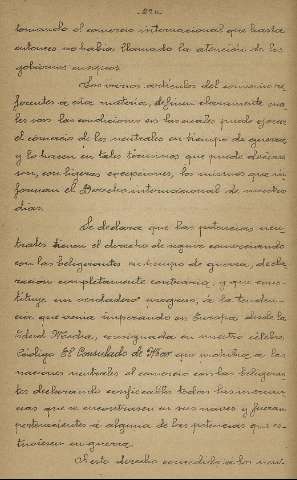 -22-
tomando el comercio internacional que hasta
entonces no habia llamado la atención de los
gobiernos europeos.
Los varios artículos del convenio re-
ferentes a esta materia, definen claramente cua-
les son las condiciones en las cuales puede ejercer
el comercio de los neutrales en tiempo de guerra,
y lo hacen en tales términos que puede decirse
son, con ligeras excepciones, los mismos que in-
forman el Derecho internacional de nuestros
días.
Se declara que las potencias neu-
trales tienen el derecho de seguir comerciando
con los beligerantes en tiempo de guerra, decla-
racion completamente contraria, y que cons-
tituye un verdadero progreso, a la tenden-
cia que venia imperando en Europa desde la
Edad Media, consignada en nuestro célebre
Código El Consulado de Mar que prohibe a las
naciones neutrales el comercio con los beligeran-
tes declarando confiscables todas las mercan-
cias que se encontrasen en sus naves y fueran
pertenecientes a alguna de las potencias que es-
tuviesen en guerra.
A este derecho concedido a los neu-